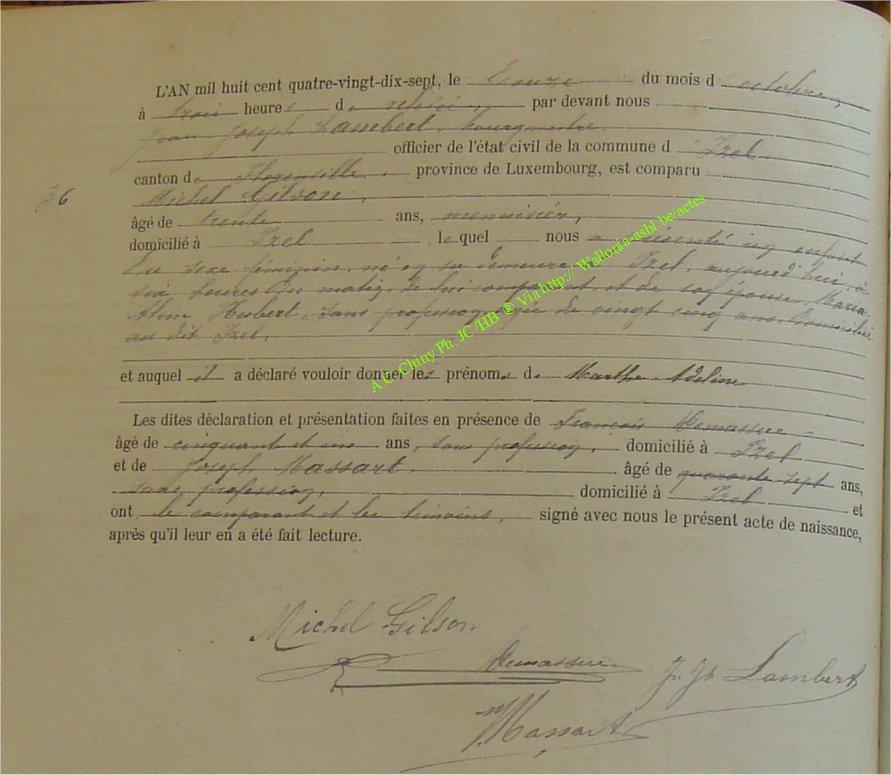 L'AN mil huit cent quatre-vingt-dix-sept, le onze du mois d octobre,
à trois heures de relevée, par devant nous
Jean Joseph Lambert, bourgmestre,
officier de l'état civil de la commune d Izel
canton de Florenville, province de Luxembourg, est comparu
26 Michel Gilson,
âgé de trente ans, menuisier,
domicilié à Izel lequel nous a présenté un enfant
du sexe féminin, né en sa demeure à Izel, aujourd'hui, à
six heures du matin, de lui comparant, et de son épouse, Maria
Hubert, sans profession, âgée de vingt cinq ans, domicilié
au dit Izel,
et auquel il a déclaré vouloir donner les prénoms de Marthe Adeline
Les dites déclaration et présentation faites en présence de François Demasure
âgé de cinquant et un ans, sans profession, domicilié à Izel
et de Joseph Massart, âgé de quarante sept ans,
sans profession, domicilié à Izel et
ont, le comparant et les témoins, signé avec nous le présent acte de naissance,
après qu'il leur en a été fait lecture.
Michel Gilson
J. Js Lambert
Massart
A G Chiny Ph. JC/HB ® Via http:// Wallonia-asbl.be/actes